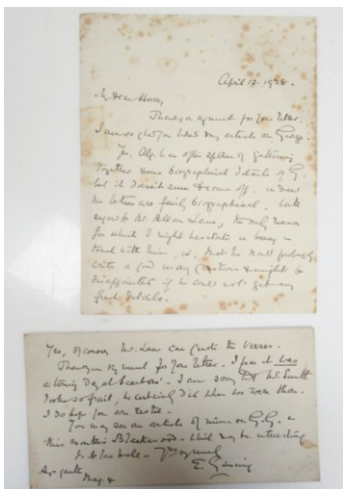 April 17. 1928.
My Dear Shorer,
Thank you very much for your letter.
I am so glad you liked my article on George.
Yes, Alg. has often spoken of gathering
together some biographical details of G.
but it doesn't seem to come off.
the letters are fairly biographical. With
regard to Mr. Allan Lane, the only reason
for which I might hesitate in being in
touch with him, is, that he would probably
write a good many questions & might be
disappointed if he could not get any
fresh details.
Yes, of course, Mr. Lane can quote the verses.
Thank you very much for your letter. I fear it was
a tiring day at I am sorry Mr. Smith
looks so frail, he certainly did when we were there.
I do hope you are rested.
You may see an article of mine on G.G. in
this month's Blackwood - which may be interesting
to Mr.
E. Gissing
May 4